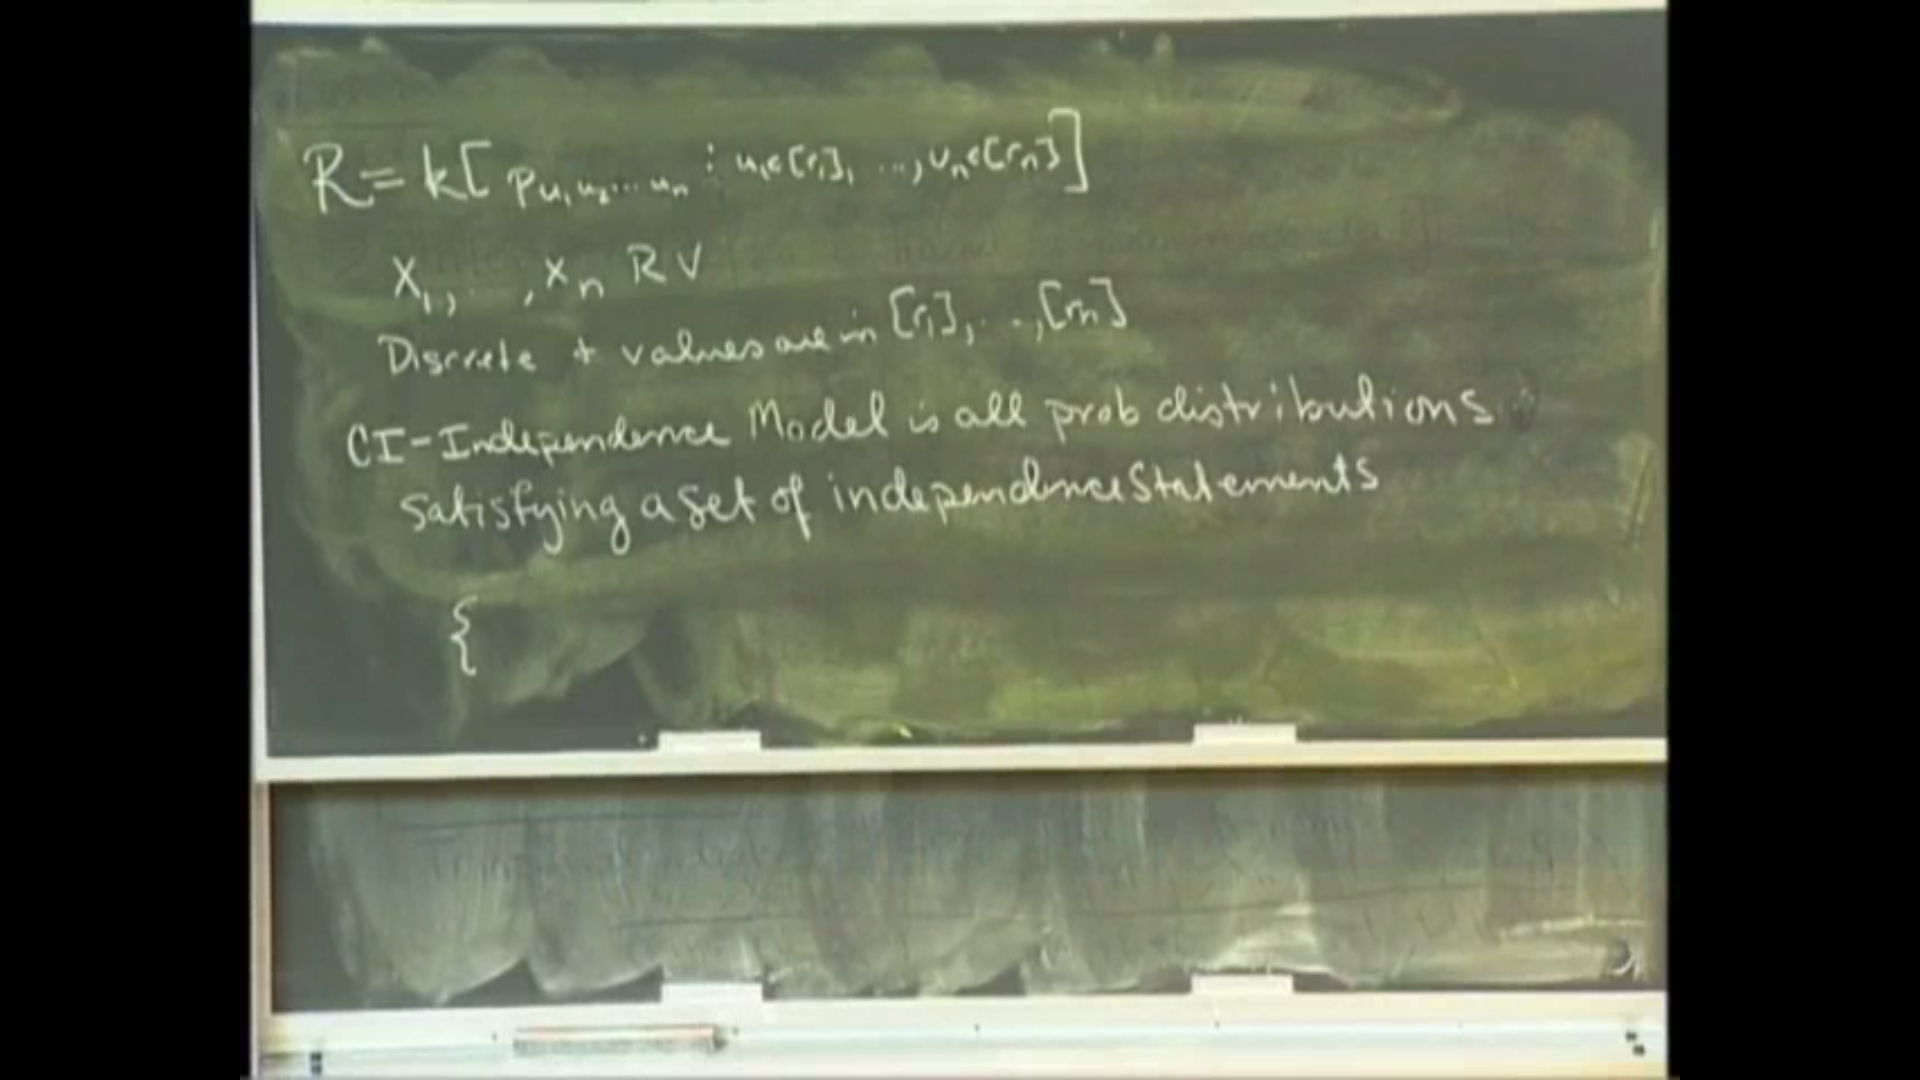 R = k[ p u₁u₂...uₙ : u₁∈[r₁], ..., uₙ∈[rₙ]]
X₁, ..., Xₙ RV
Discrete + values are in [r₁], ..., [rₙ]
CI-Independence Model is all prob distributions
satisfying a set of independence statements
{